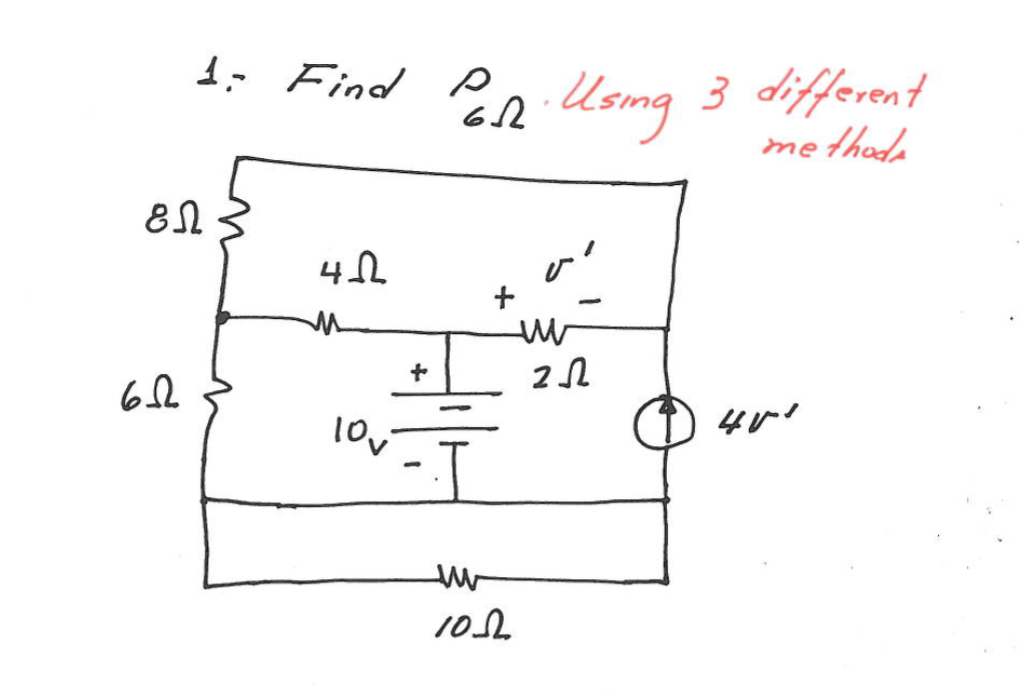 1.- Find P6Ω. Using 3 different
methods
8Ω
4Ω
v'
+ −
6Ω
+
2Ω
10v
−
4v'
10Ω